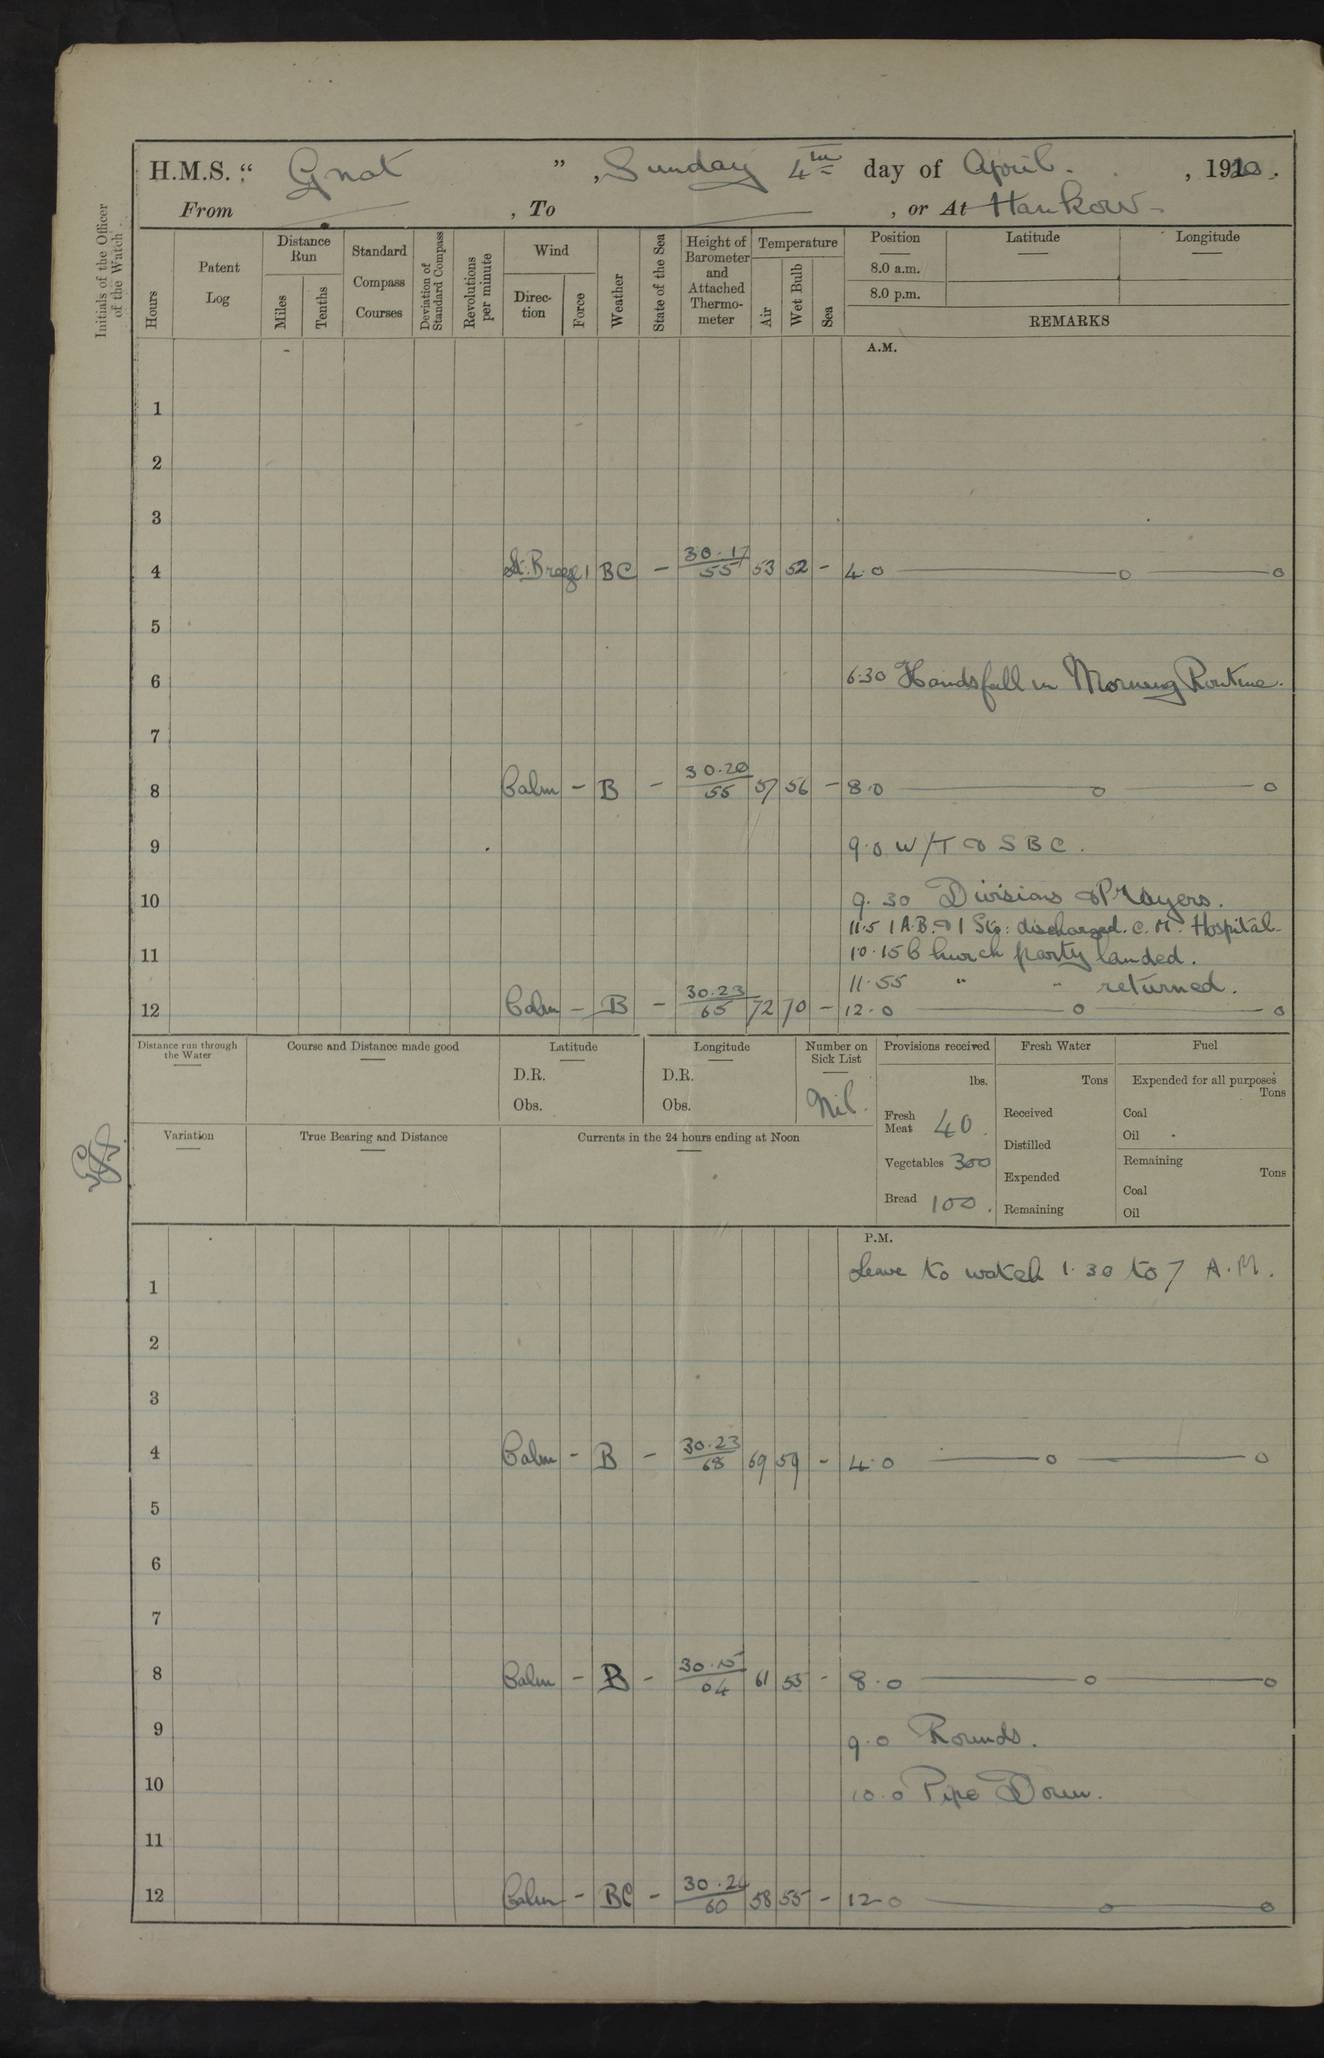 H.M.S. “ Gnat ” , Sunday 4th day of April. , 1920.
From , To , or At Hankow
Initials of the Officer of the Watch
Hours
Patent Log
Distance Run
Miles
Tenths
Standard Compass Courses
Deviation of Standard Compass
Revolutions per minute
Wind
Direc-tion
Force
Weather
State of the Sea
Height of Barometer and Attached Thermo-meter
Temperature
Air
Wet Bulb
Sea
Position
8.0 a.m.
8.0 p.m.
Latitude
Longitude
REMARKS
A.M.
1
2
3
4 Lt. Breeze 1 BC — 30.17/55 53 52 - 4.0 ———o———o
5
6 6.30 Hands fall in Morning Routine.
7
8 Calm - B - 30.20/55 57 56 - 8.0 ———o———o
9 9.0 W/T & S B C.
10 9.30 Divisions & Prayers.
11.5 1 A.B. & 1 Sig: discharged. C. M. Hospital
11 10.15 Church party landed.
11.55 " " returned.
12 Calm — B - 30.23/65 72 70 - 12.0 ———o———o
Distance run through the Water
Course and Distance made good
Latitude
D.R.
Obs.
Longitude
D.R.
Obs.
Number on Sick List
Nil.
Provisions received
lbs.
Fresh Meat 40.
Vegetables 300
Bread 100.
Fresh Water
Tons
Received
Distilled
Expended
Remaining
Fuel
Expended for all purposes
Tons
Coal
Oil
Remaining
Tons
Coal
Oil
Variation
True Bearing and Distance
Currents in the 24 hours ending at Noon
P.M.
Leave to watch 1.30 to 7 A.M.
1
2
3
4 Calm - B - 30.23/68 69 59 - 4.0 ———o———o
5
6
7
8 Calm - B - 30.15/64 61 53 - 8.0 ———o———o
9 9.0 Rounds.
10 10.0 Pipe Down.
11
12 Calm - BC - 30.24/60 58 55 - 12.0 ———o———o